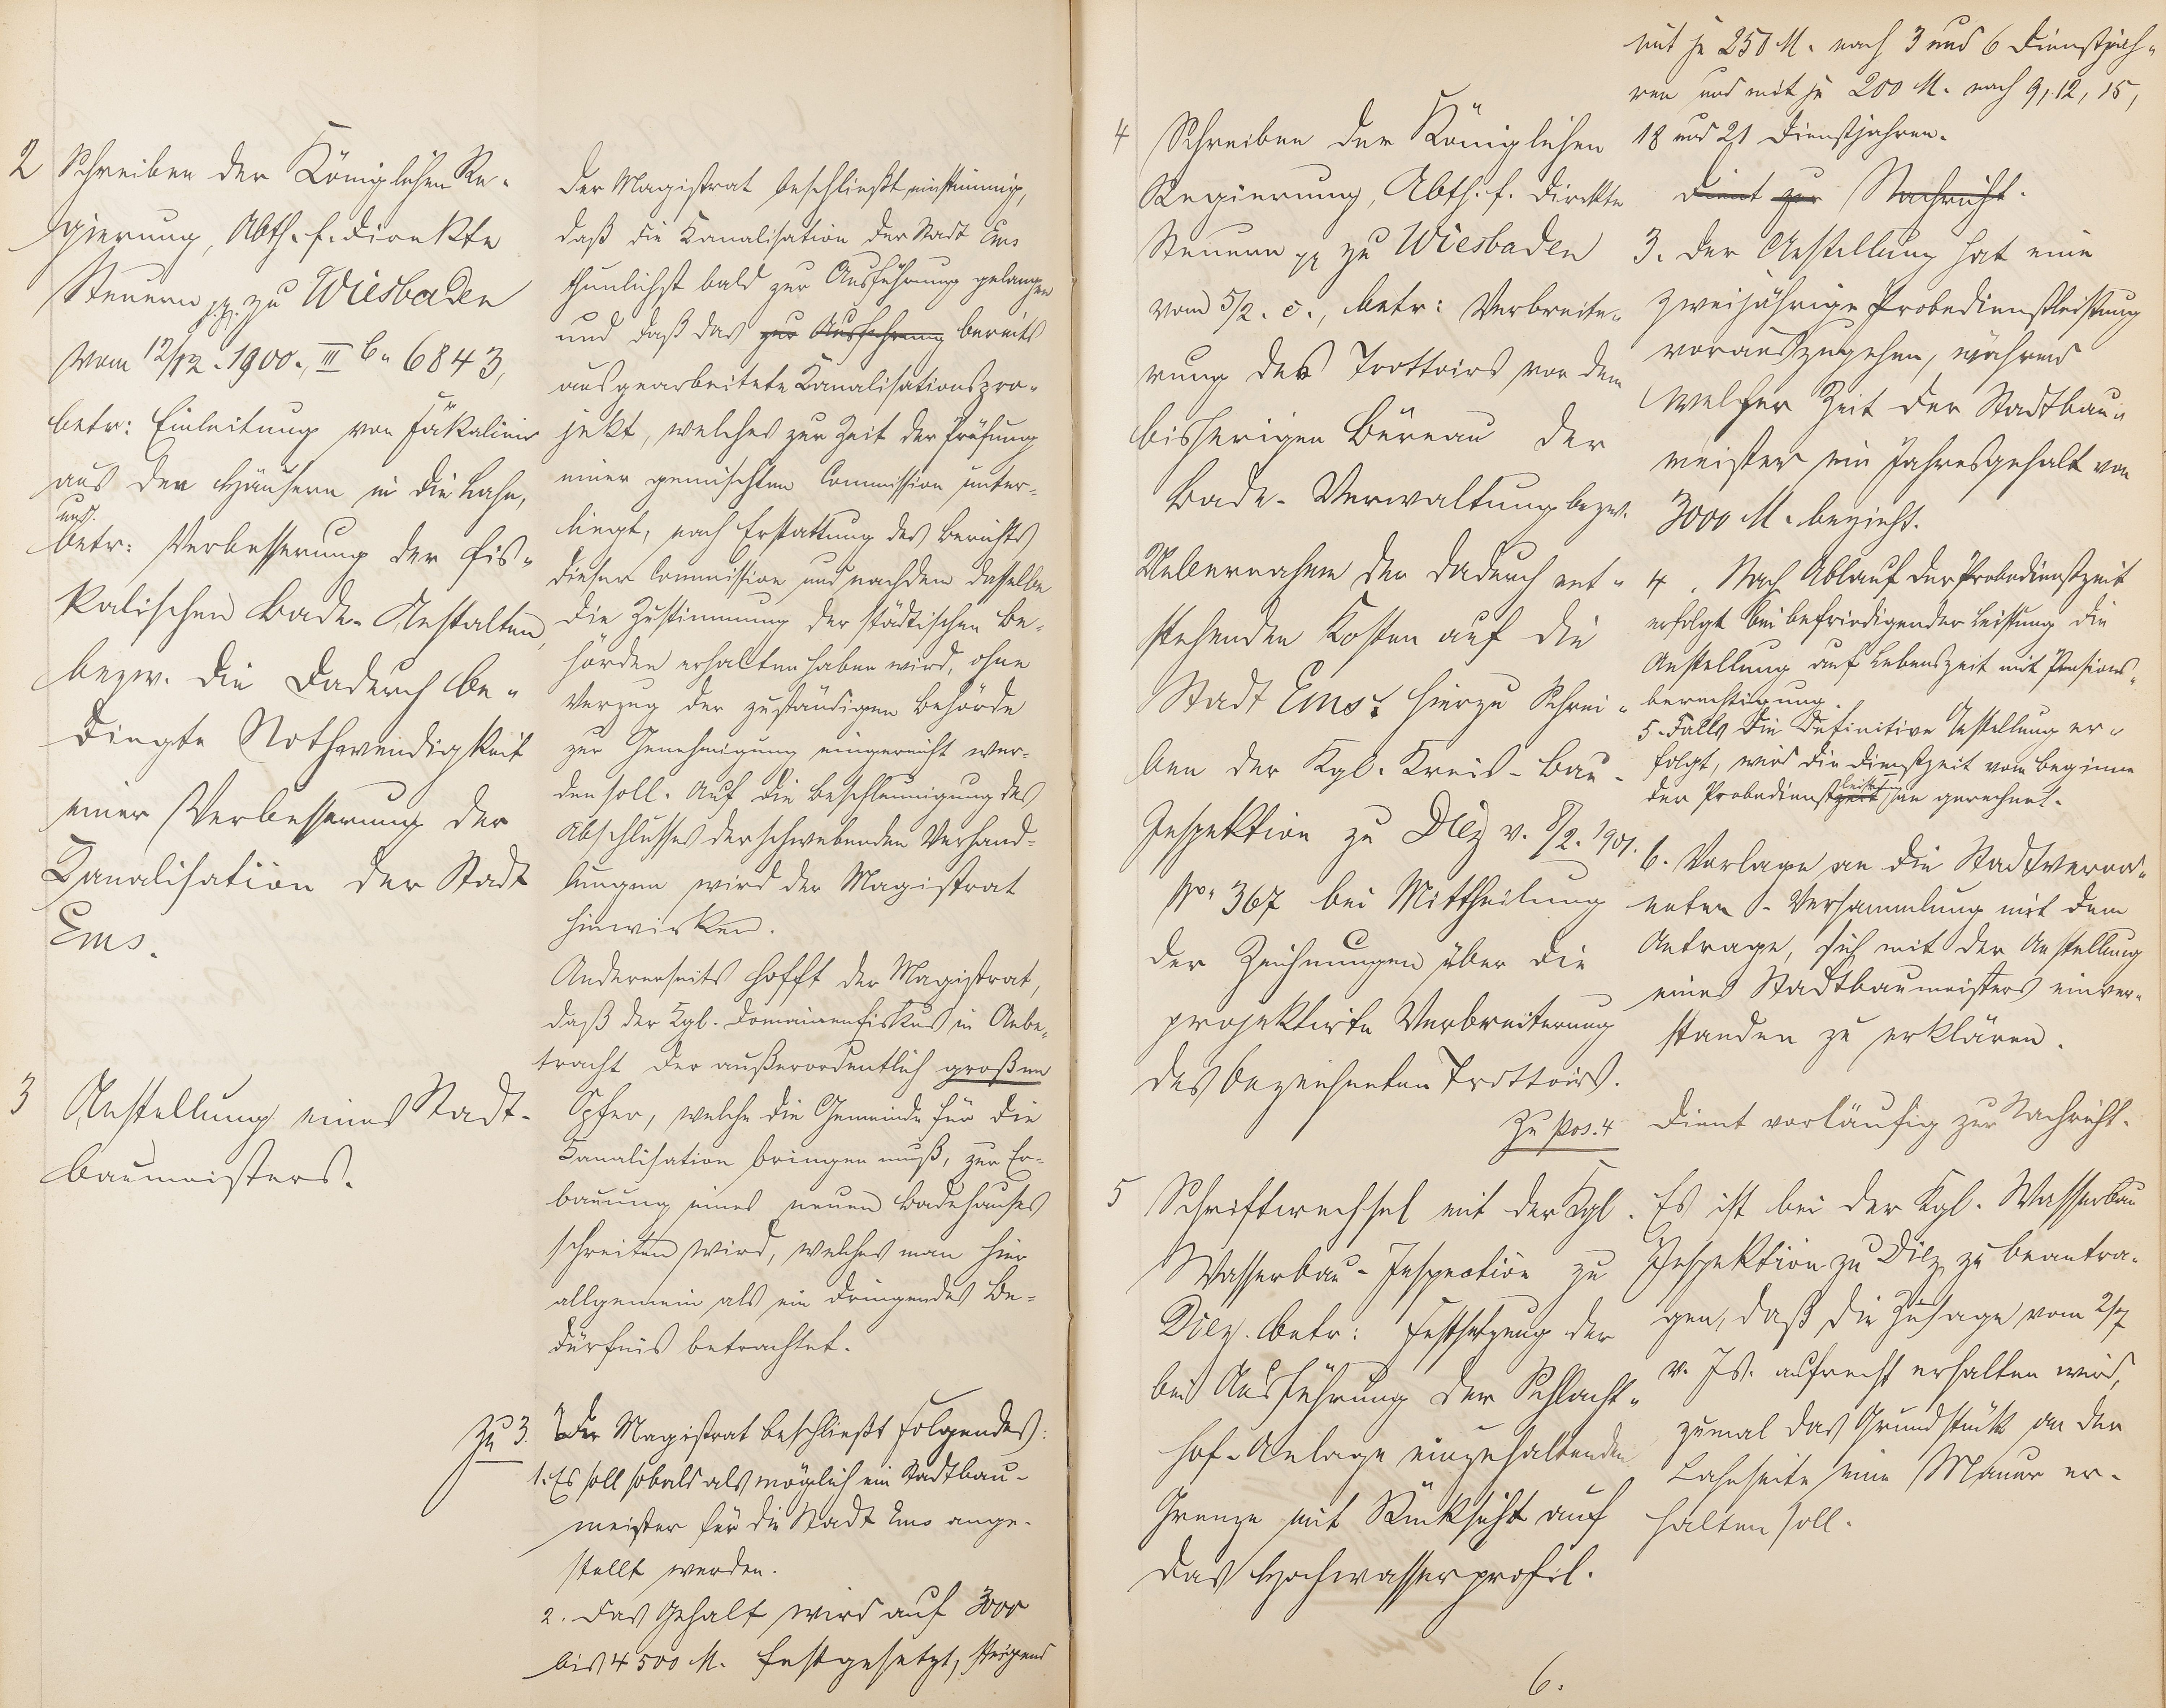 2 Schreiben der Königlichen Re-
gierung, Abth. f. direkte
Steuern pp. zu Wiesbaden
vom 12/12. 1900., III b. 6843,
betr: Einleitung von Fäkalien
aus den Häusern in die Lahn,
und
betr: Verbesserung der fis-
kalischen Bade-Anstalten,
bezw. die dadurch be-
dingte Nothwendigkeit
einer Verbesserung der
Kanalisation der Stadt
Ems.
3 Anstellung eines Stadt-
baumeisters.
Der Magistrat beschließt einstimmig,
daß die Kanalisation der Stadt Ems
thunlichst bald zur Ausführung gelangen
und daß das zur Ausführung bereits
ausgearbeitete Kanalisationspro-
jekt, welches zur Zeit der Prüfung
einer gemischten Commission unter-
liegt, nach Erstattung des Berichts
dieser Commission und nachdem dasselbe
die Zustimmung der städtischen Be-
hörden erhalten haben wird, ohne
Verzug der zuständigen Behörde
zur Genehmigung eingereicht wer-
den soll. Auf die Beschleunigung des
Abschlusses der schwebenden Verhand-
lungen wird der Magistrat
hinwirken.
Andererseits hofft der Magistrat,
daß der Kgl. Domainenfiskus in Anbe-
tracht der außerordentlich großen
Opfer, welche die Gemeinde für die
Kanalisation bringen muß, zur Er-
bauung eines neuen Badehauses
schreiten wird, welches man hier
allgemein als ein dringendes Be-
dürfnis betrachtet.
Zu 3. Der Magistrat beschließt Folgendes:
1. Es soll sobald als möglich ein Stadtbau-
meister für die Stadt Ems ange-
stellt werden.
2. Das Gehalt wird auf 3000
bis 4500 M. festgesetzt, steigend
4 Schreiben der Königlichen
Regierung, Abth. f. direkte
Steuern pp zu Wiesbaden
vom 5/2. c., betr: Verbreite-
rung des Trottoirs vor dem
bisherigen Büreau der
Bade-Verwaltung bezw.
Uebernahme der dadurch ent-
stehenden Kosten auf die
Stadt Ems; hierzu Schrei-
ben der Kgl. Kreis-Bau-
Inspektion zu Diez v. 8/2. 1901.
No. 367 bei Mittheilung
der Zeichnungen über die
projektirte Verbreiterung
des bezeichneten Trottoirs.
Zu Pos. 4
5 Schriftwechsel mit der Kgl.
Wasserbau-Inspection zu
Diez. betr: Festsetzung der
bei Ausführung der Schlacht-
hof-Anlage einzuhaltenden
Grenze mit Rücksicht auf
das Hochwasserprofil.
mit je 250 M. nach 3 und 6 Dienstjah-
ren und mit je 200 M. nach 9, 12, 15,
18 und 21 Dienstjahren.
Dient zur Nachricht.
3. Der Anstellung hat eine
zweijährige Probedienstleistung
vorauszugehen, während
welcher Zeit der Stadtbau-
meister ein Jahresgehalt von
3000 M. bezieht.
4. Nach Ablauf der Probedienstzeit
erfolgt bei befriedigender Leistung die
Anstellung auf Lebenszeit mit Pensions-
berechtigung.
5. Falls die definitive Anstellung er-
folgt, wird die Dienstzeit vom Beginne
leistung
der Probedienstzeit an gerechnet.
6. Vorlage an die Stadtverord-
neten-Versammlung mit dem
Antrage, sich mit der Anstellung
eines Stadtbaumeisters einver-
standen zu erklären.
Dient vorläufig zur Nachricht.
Es ist bei der Kgl. Wasserbau
Inspektion zu Diez zu beantra-
gen, daß die Zusage vom 2/7
v. Js. aufrecht erhalten wird,
zumal das Grundstück an der
Lahnseite eine Mauer er-
halten soll.
6.